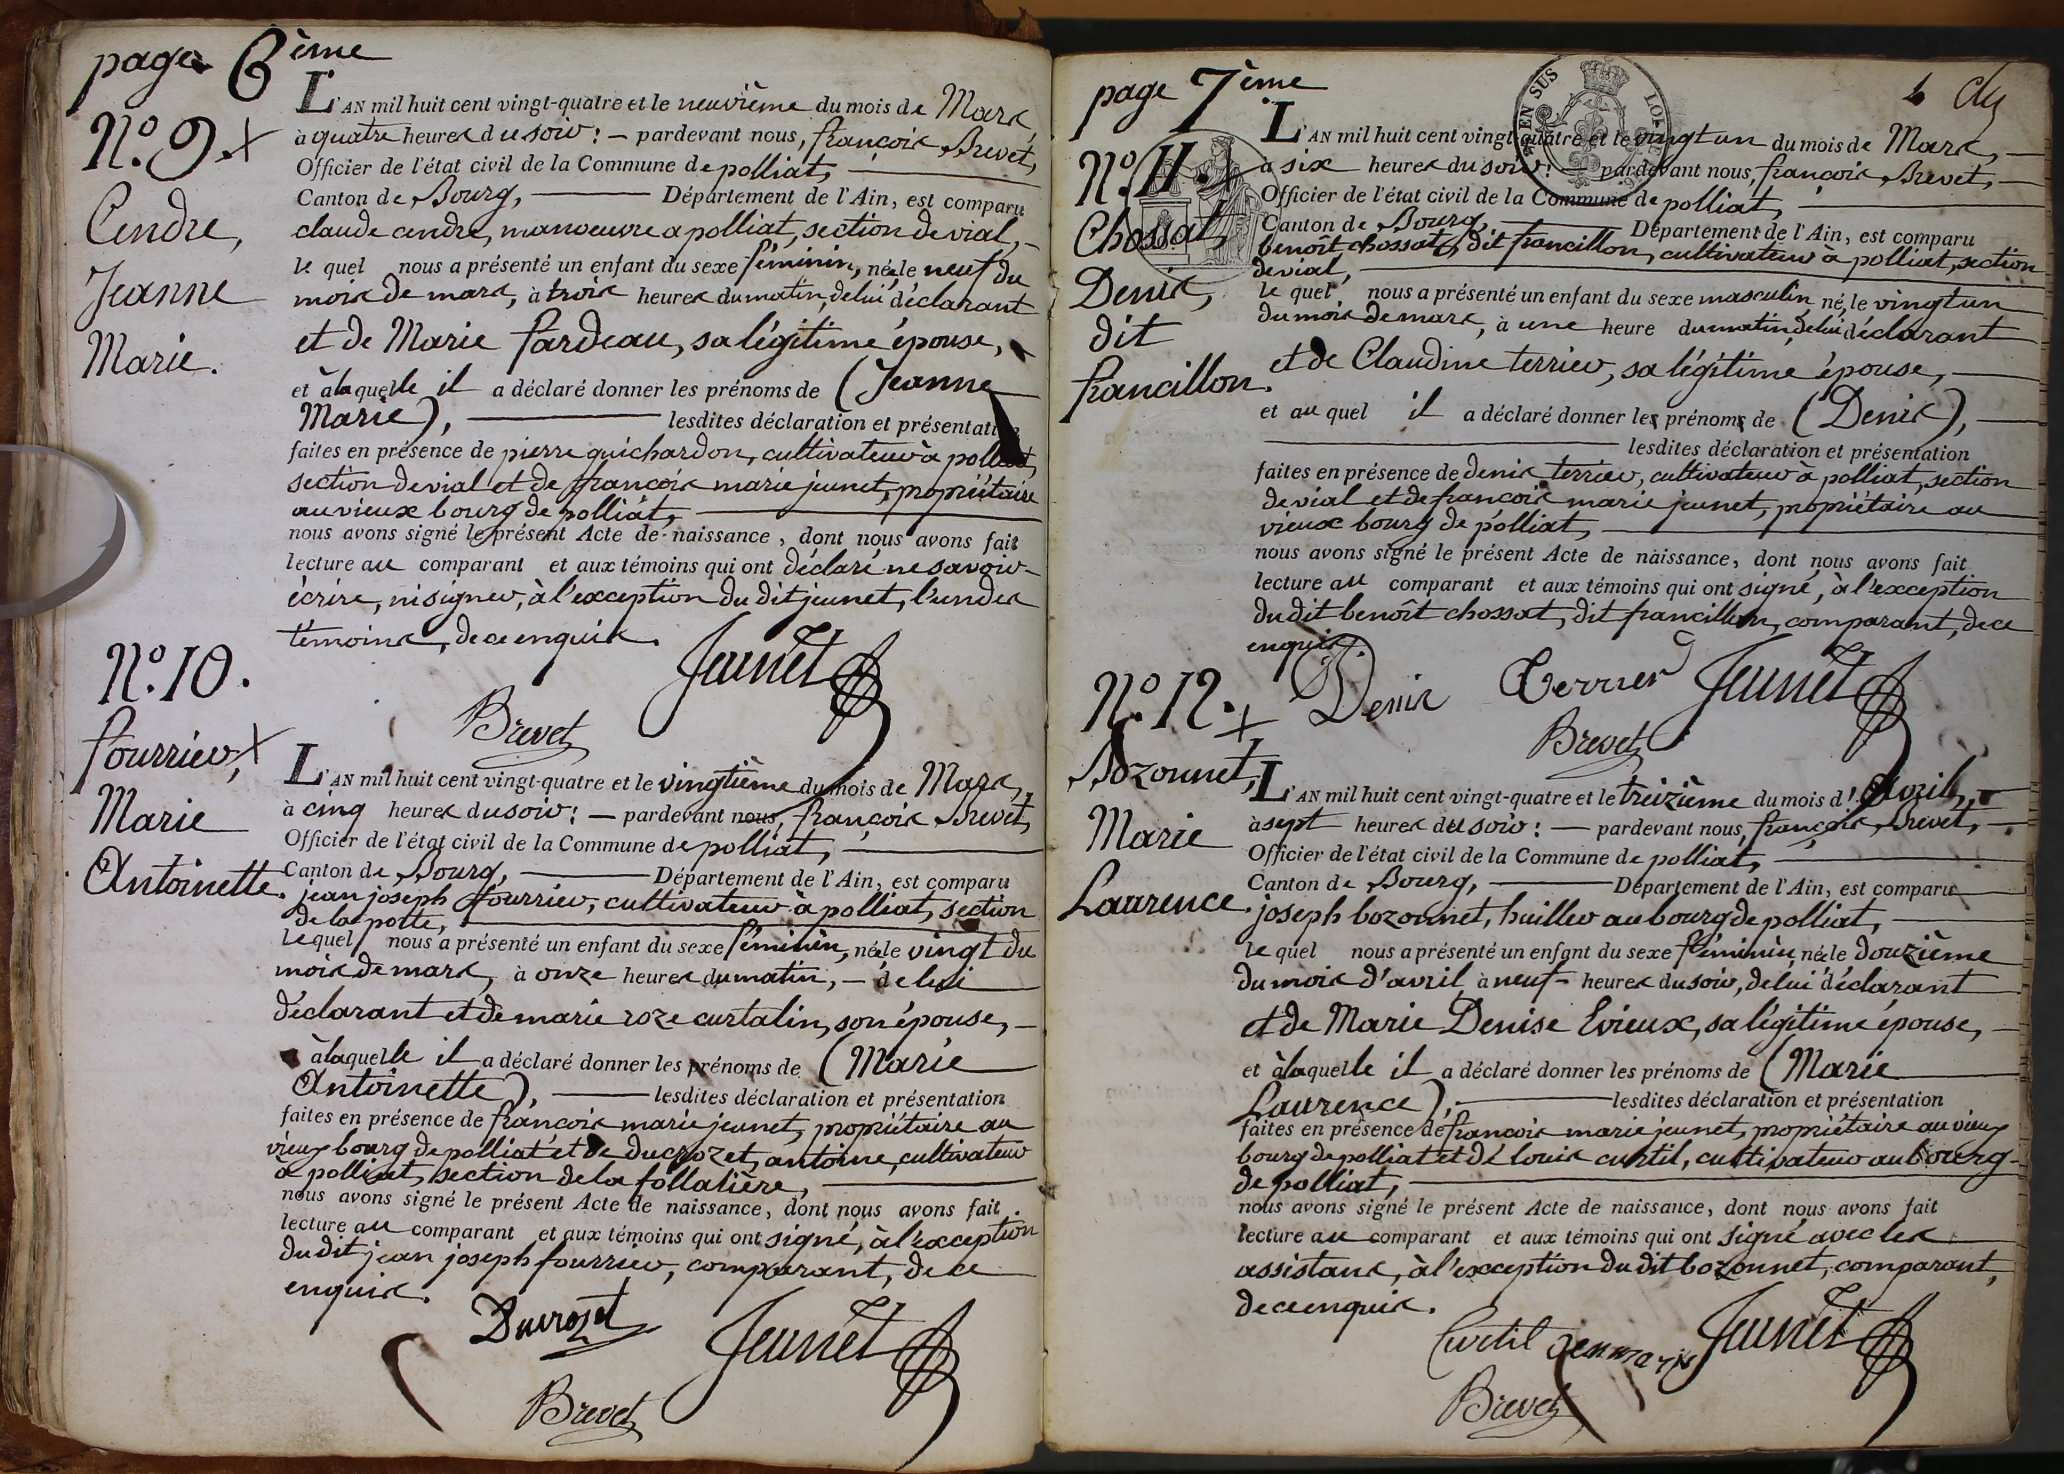 page 6ème
N°. 9. x
Cendre,
Jeanne
Marie.
L'AN mil huit cent vingt-quatre et le neuvième du mois de Mars,
à quatre heures du soir : — pardevant nous, françois Brevet,
Officier de l'état civil de la Commune de polliat,
Canton de Bourg, Département de l'Ain, est comparu
claude cendre, manoeuvre a polliat, section de vial,
le quel nous a présenté un enfant du sexe féminin, née le neuf du
mois de mars, à trois heures du matin, de lui déclarant
et de Marie fardeau, sa légitime épouse,
et à laquelle il a déclaré donner les prénoms de (Jeanne
Marie), lesdites déclaration et présentation
faites en présence de pierre guichardon, cultivateur à polliat,
section de vial et de françois marie jeunet, propriétaire
au vieux bourg de polliat,
nous avons signé le présent Acte de naissance, dont nous avons fait
lecture au comparant et aux témoins qui ont déclaré ne savoir
écrire, ni signer, à l'exception du dit jeunet, l'un des
témoins, de ce enquis.
Jeunet
Brevet
N°. 10.
fourrier, x
Marie
Antoinette.
L'AN mil huit cent vingt-quatre et le vingtième du mois de Mars,
à cinq heures du soir : — pardevant nous, françois Brevet,
Officier de l'état civil de la Commune de polliat,
Canton de Bourg, Département de l'Ain, est comparu
jean joseph fourrier, cultivateur à polliat, section
de la potte,
le quel nous a présenté un enfant du sexe féminin, née le vingt du
mois de mars, à onze heures du matin, — de lui
déclarant et de marie roze curtalin, son épouse,
à laquelle il a déclaré donner les prénoms de (Marie
Antoinette), lesdites déclaration et présentation
faites en présence de françois marie jeunet, propriétaire au
vieux bourg de polliat et de ducrozet, antoine, cultivateur
à polliat, section de la follatière,
nous avons signé le présent Acte de naissance, dont nous avons fait
lecture au comparant et aux témoins qui ont signé, à l'exception
du dit jean joseph fourrier, comparant, de ce
enquis.
Ducrozet Jeunet
Brevet
page 7ème
4
N°. 11.
Chossat,
Denis,
dit
francillon.
EN SUS
L'AN mil huit cent vingt-quatre et le vingt un du mois de Mars,
à six heures du soir : pardevant nous, françois Brevet,
Officier de l'état civil de la Commune de polliat,
Canton de Bourg, Département de l'Ain, est comparu
benoît chossat, dit francillon, cultivateur à polliat, section
de vial,
le quel nous a présenté un enfant du sexe masculin, né, le vingt un
du mois de mars, à une heure du matin, de lui déclarant
et de Claudine terrier, sa légitime épouse,
et au quel il a déclaré donner les prénoms de (Denis),
lesdites déclaration et présentation
faites en présence de denis terrier, cultivateur à polliat, section
de vial et de françois marie jeunet, propriétaire au
vieux bourg de polliat,
nous avons signé le présent Acte de naissance, dont nous avons fait
lecture au comparant et aux témoins qui ont signé, à l'exception
du dit benoît chossat, dit francillon, comparant, de ce
enquis.
Denis Terrier Jeunet
Brevet
N°. 12. x
Bozonnet,
Marie
Laurence.
L'AN mil huit cent vingt-quatre et le treizième du mois d'Avril,
à sept heures du soir : — pardevant nous, françois Brevet,
Officier de l'état civil de la Commune de polliat,
Canton de Bourg, Département de l'Ain, est comparu
joseph bozonnet, huiller au bourg de polliat,
le quel nous a présenté un enfant du sexe féminin, née le douzième
du mois d'avril, à neuf heures du soir, de lui déclarant
et de Marie Denise Evieux, sa légitime épouse,
et à laquelle il a déclaré donner les prénoms de (Marie
Laurence), lesdites déclaration et présentation
faites en présence de françois marie jeunet, propriétaire au vieux
bourg de polliat et de louis curtil, cultivateur au bourg
de polliat,
nous avons signé le présent Acte de naissance, dont nous avons fait
lecture au comparant et aux témoins qui ont signé avec les
assistans, à l'exception du dit bozonnet, comparant,
de ce enquis.
Curtil Jeunet
Brevet